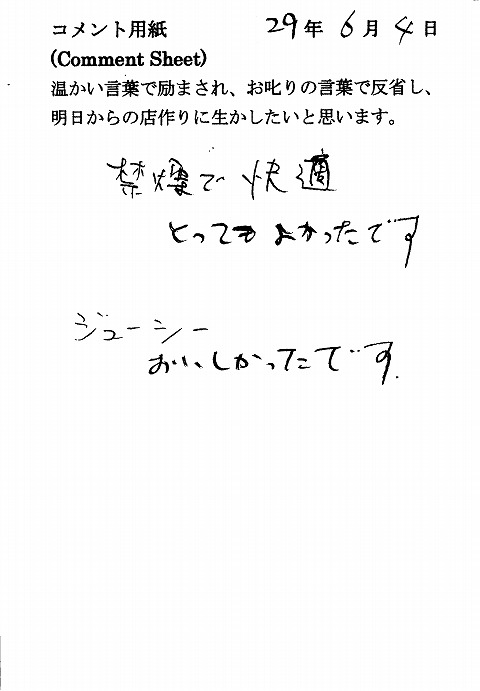 コメント用紙 29年6月4日
(Comment Sheet)
温かい言葉で励まされ、お叱りの言葉で反省し、
明日からの店作りに生かしたいと思います。
禁煙で快適
とってもよかったです
ジューシー
おいしかったです.